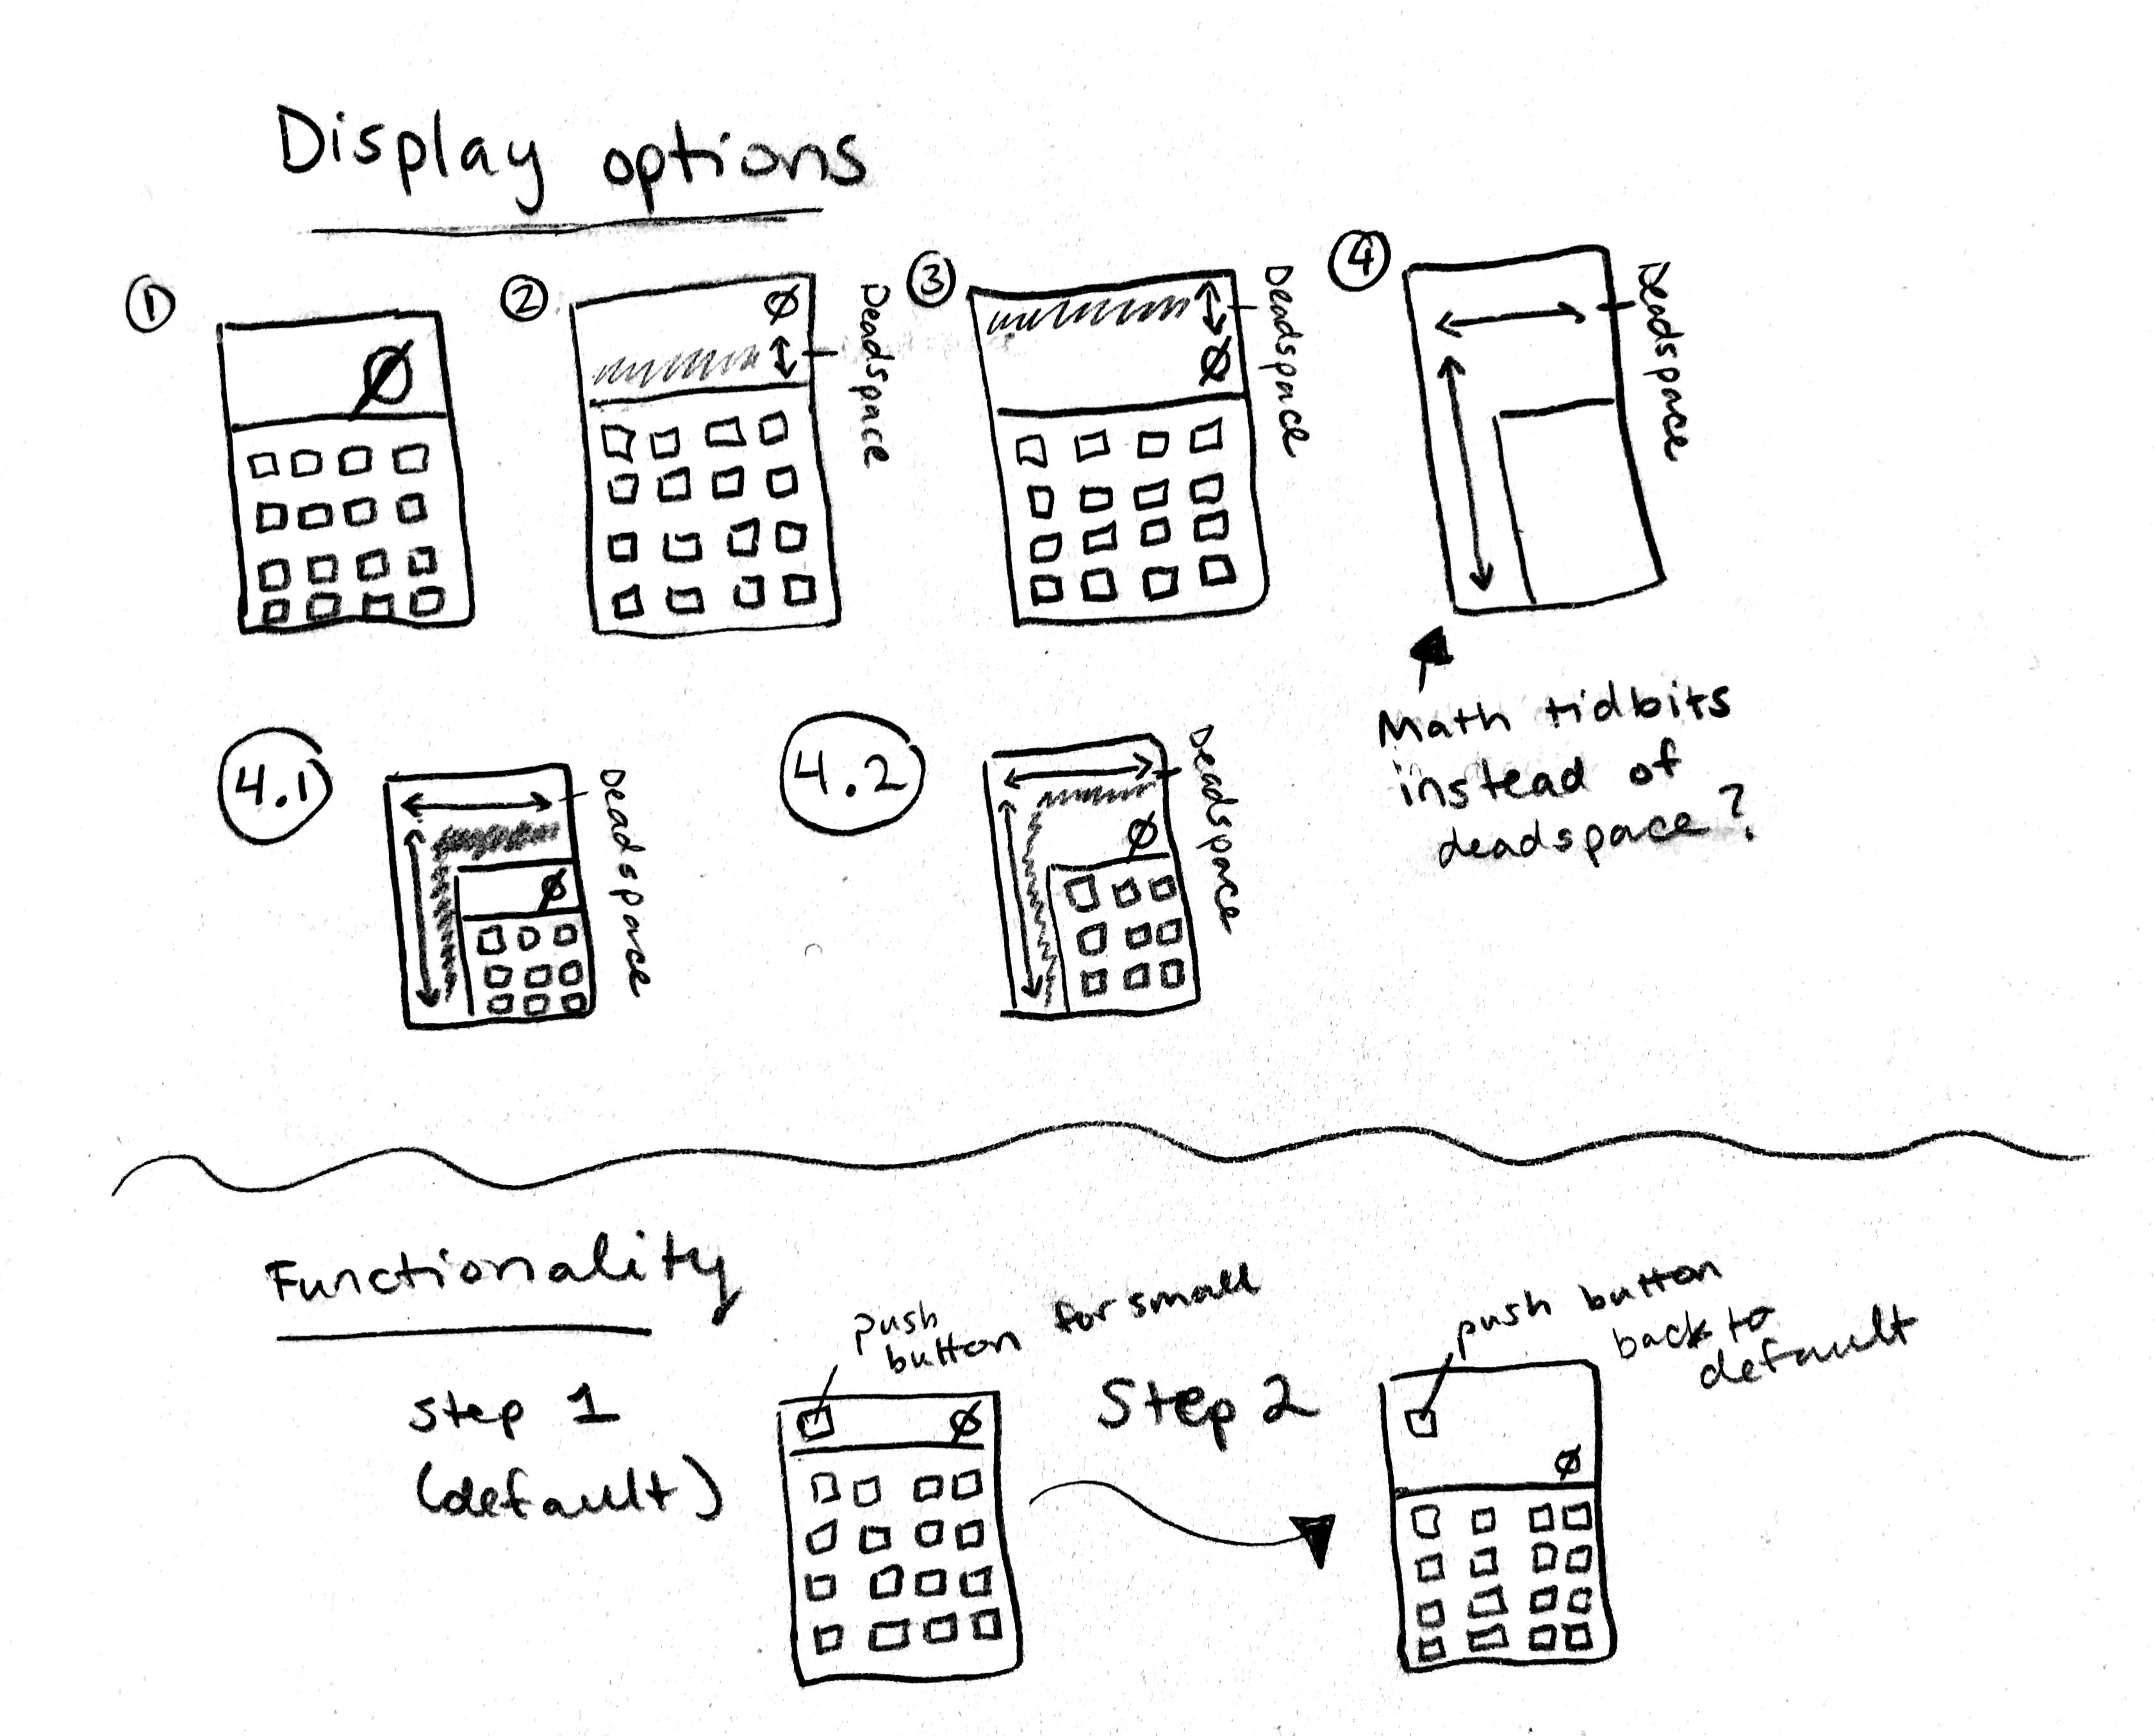 Display options
1
2
3
4
Ø
Ø
Deadspace
Ø
Deadspace
Deadspace
Math tidbits
instead of
deadspace?
4.1
Ø
Deadspace
4.2
Ø
Deadspace
Functionality
step 1
(default)
push
button for small
Ø
Step 2
push button
back to
default
Ø